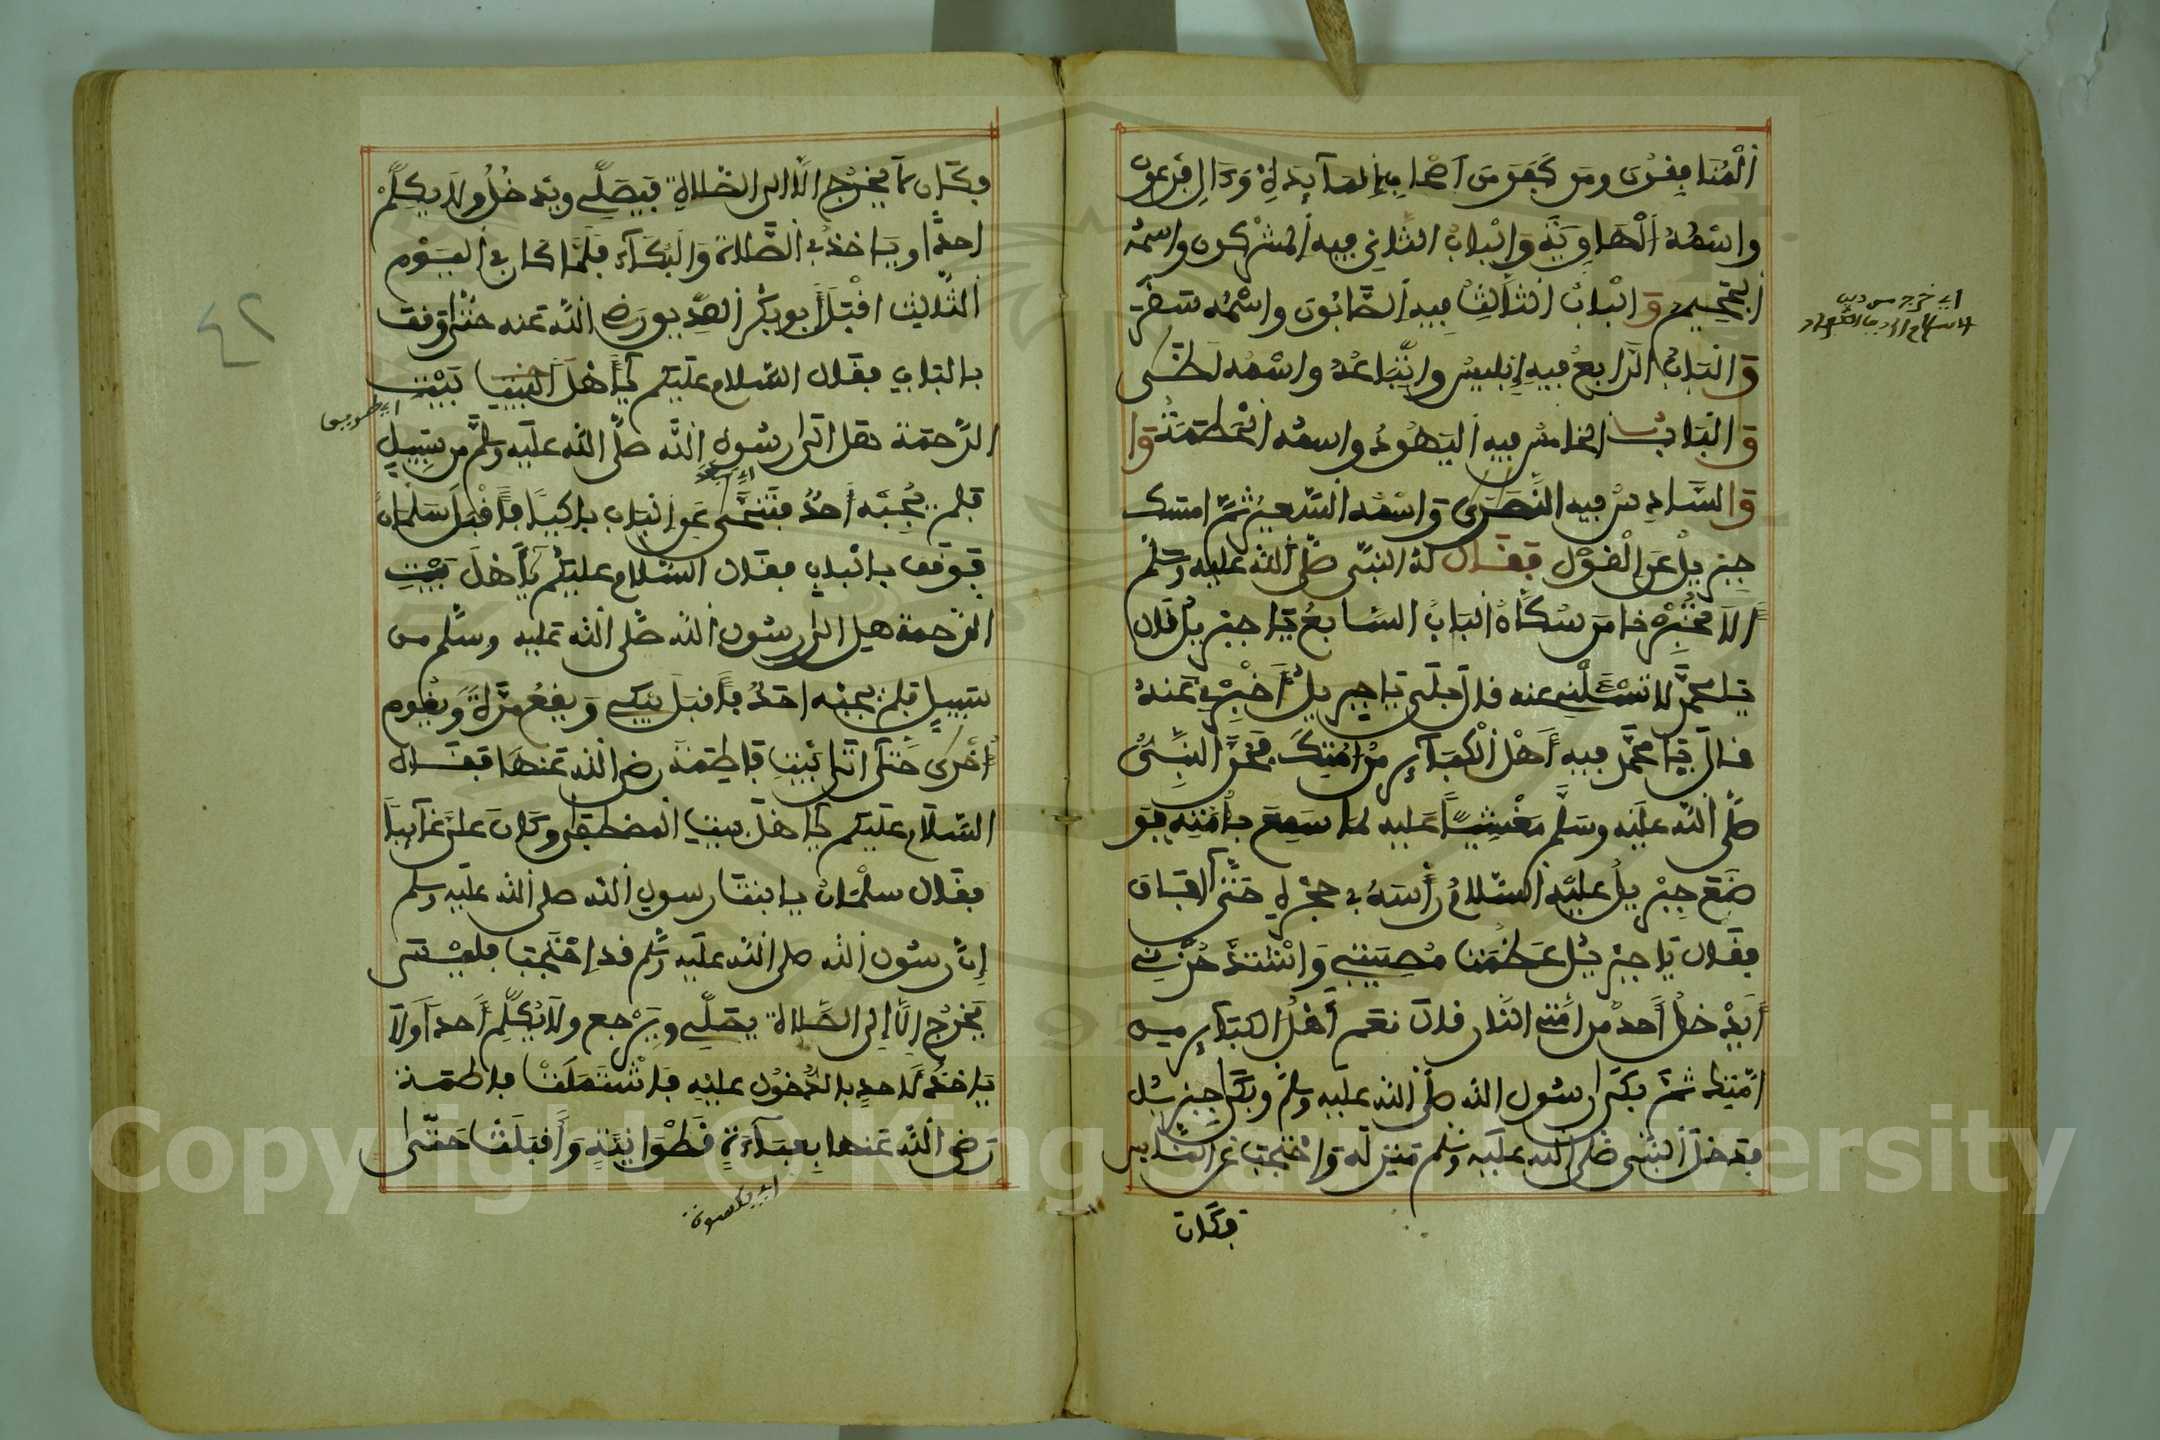 المنافقون ومن كفر من أصحاب المآيدة وءال فرعون
واسمه الهاوية والباب الثاني فيه المشركون واسمه
الجحيم والباب الثالث فيه الصابون واسمه سقر
والباب الرابع فيه إبليس واتباعه واسمه لظى
والباب الخامس فيه اليهود واسمه الحطمة وا
والسادس فيه النصرى واسمه السعير ثم امسك
جبريل عن القول فقال له النبي صلى الله عليه وسلم
ألا تخبرنا من سكان الباب السابع يا جبريل قال
يا محمد لا تسئلني عنه قال بلى يا جبريل أخبرني عنه
قال يا محمد فيه أهل الكبآير من امتك فخر النبي
صلى الله عليه وسلم مغشيا عليه لما سمع بأمته فو
ضع جبريل عليه السلام رأسه في حجره حتى افاق
فقال يا جبريل عظمت مصيبتي واشتد حزني
أيدخل أحد من امتي النار قال نعم أهل الكبآير من
امتك ثم بكى رسول الله صلى الله عليه وسلم وبكى جبريل
ودخل النبي صلى الله عليه وسلم منزله واحتجب عن الناس
فكان
فكان لا يخرج الا الى الصلاة فيصلي ويدخل ولا يكلم
احدا وياخذ في الصلاة والبكآء فلما كان في اليوم
الثالث اقبل أبو بكر الصديق رضي الله عنه حتى وقف
بالباب فقال السلام عليكم يا أهل البيت بيت
الرحمة هل الى رسول الله صلى الله عليه وسلم من سبيل
فلم يجبه أحد فتنحى عن الباب باكيا فأقبل سلمان
فوقف بالباب فقال السلام عليكم يأهل بيت
الرحمة هل الى رسول الله صلى الله عليه وسلم من
سبيل فلم يجبه احد فأقبل يبكي ويقع مرة ويقوم
أخرى حتى اتى بيت فاطمة رضي الله عنها فقال
السلام عليكم يا أهل بيت المصطفى وكان علي غآئبا
فقال سلمان يا ابنة رسول الله صلى الله عليه وسلم
إن رسول الله صلى الله عليه وسلم قد احتجب فليس
يخرج إلا إلى الصلاة يصلي ويرجع ولا يكلم أحدا ولا
ياخذ لاحد بالدخول عليه فاشتملت فاطمة
رضي الله عنها بعبآءة قطوانية وأقبلت حتى
٤٢
Copyright © King Saud University